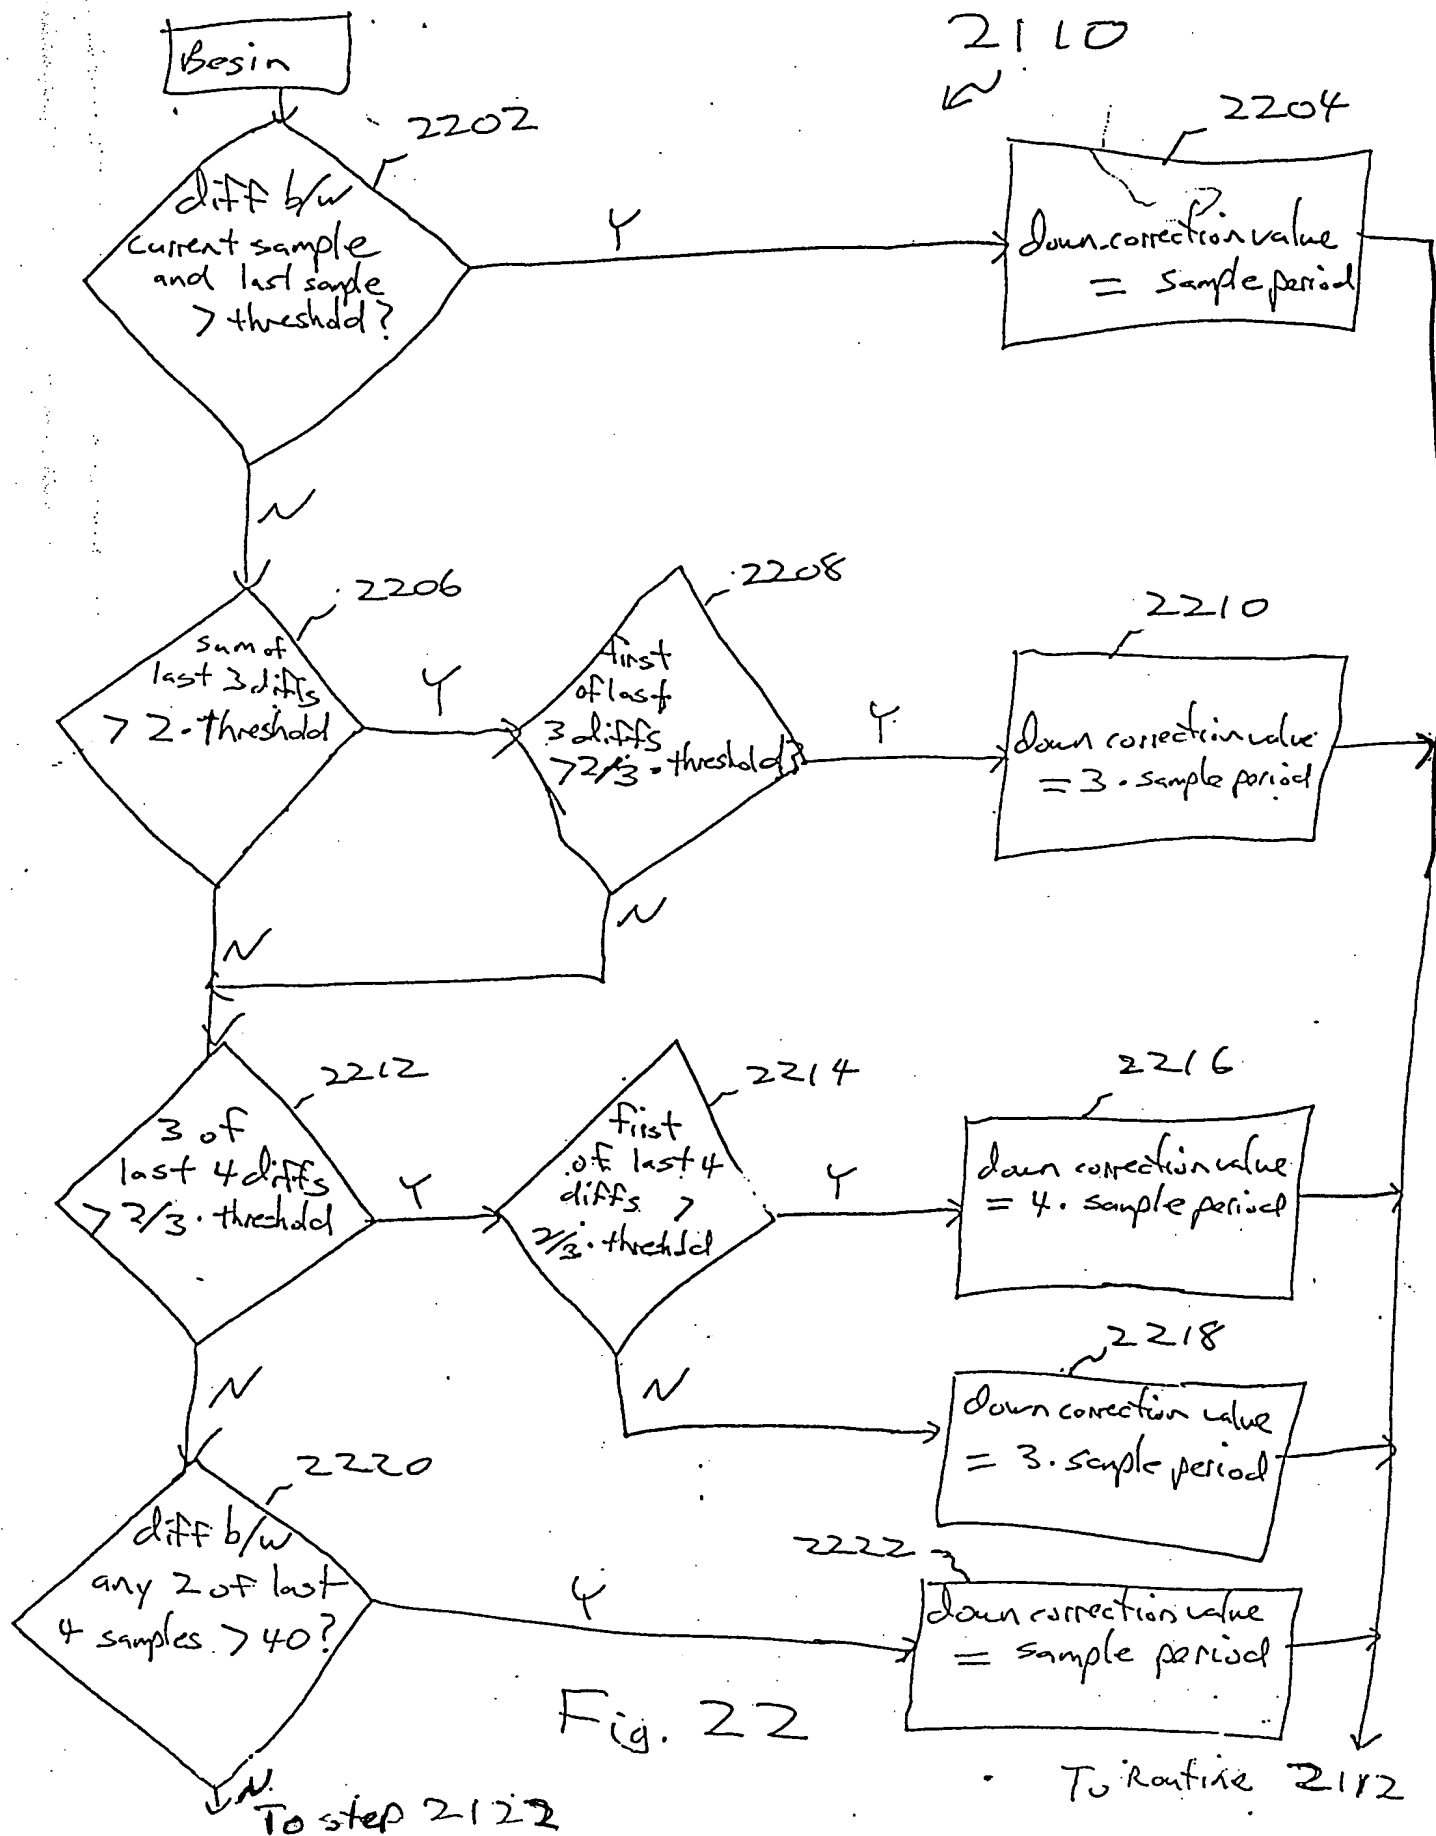 2110
Begin
2202
diff b/w
current sample
and last sample
> threshold?
Y
N
2204
down correction value
= sample period
2206
sum of
last 3 diffs
> 2 · threshold
Y
N
2208
first
of last
3 diffs
> 2/3 · threshold?
Y
N
2210
down correction value
= 3 · sample period
2212
3 of
last 4 diffs
> 2/3 · threshold
Y
N
2214
first
of last 4
diffs >
2/3 · threshold
Y
N
2216
down correction value
= 4 · sample period
2218
down correction value
= 3 · sample period
2220
diff b/w
any 2 of last
4 samples > 40?
Y
N
2222
down correction value
= sample period
Fig. 22
To step 2122
To Routine 2112